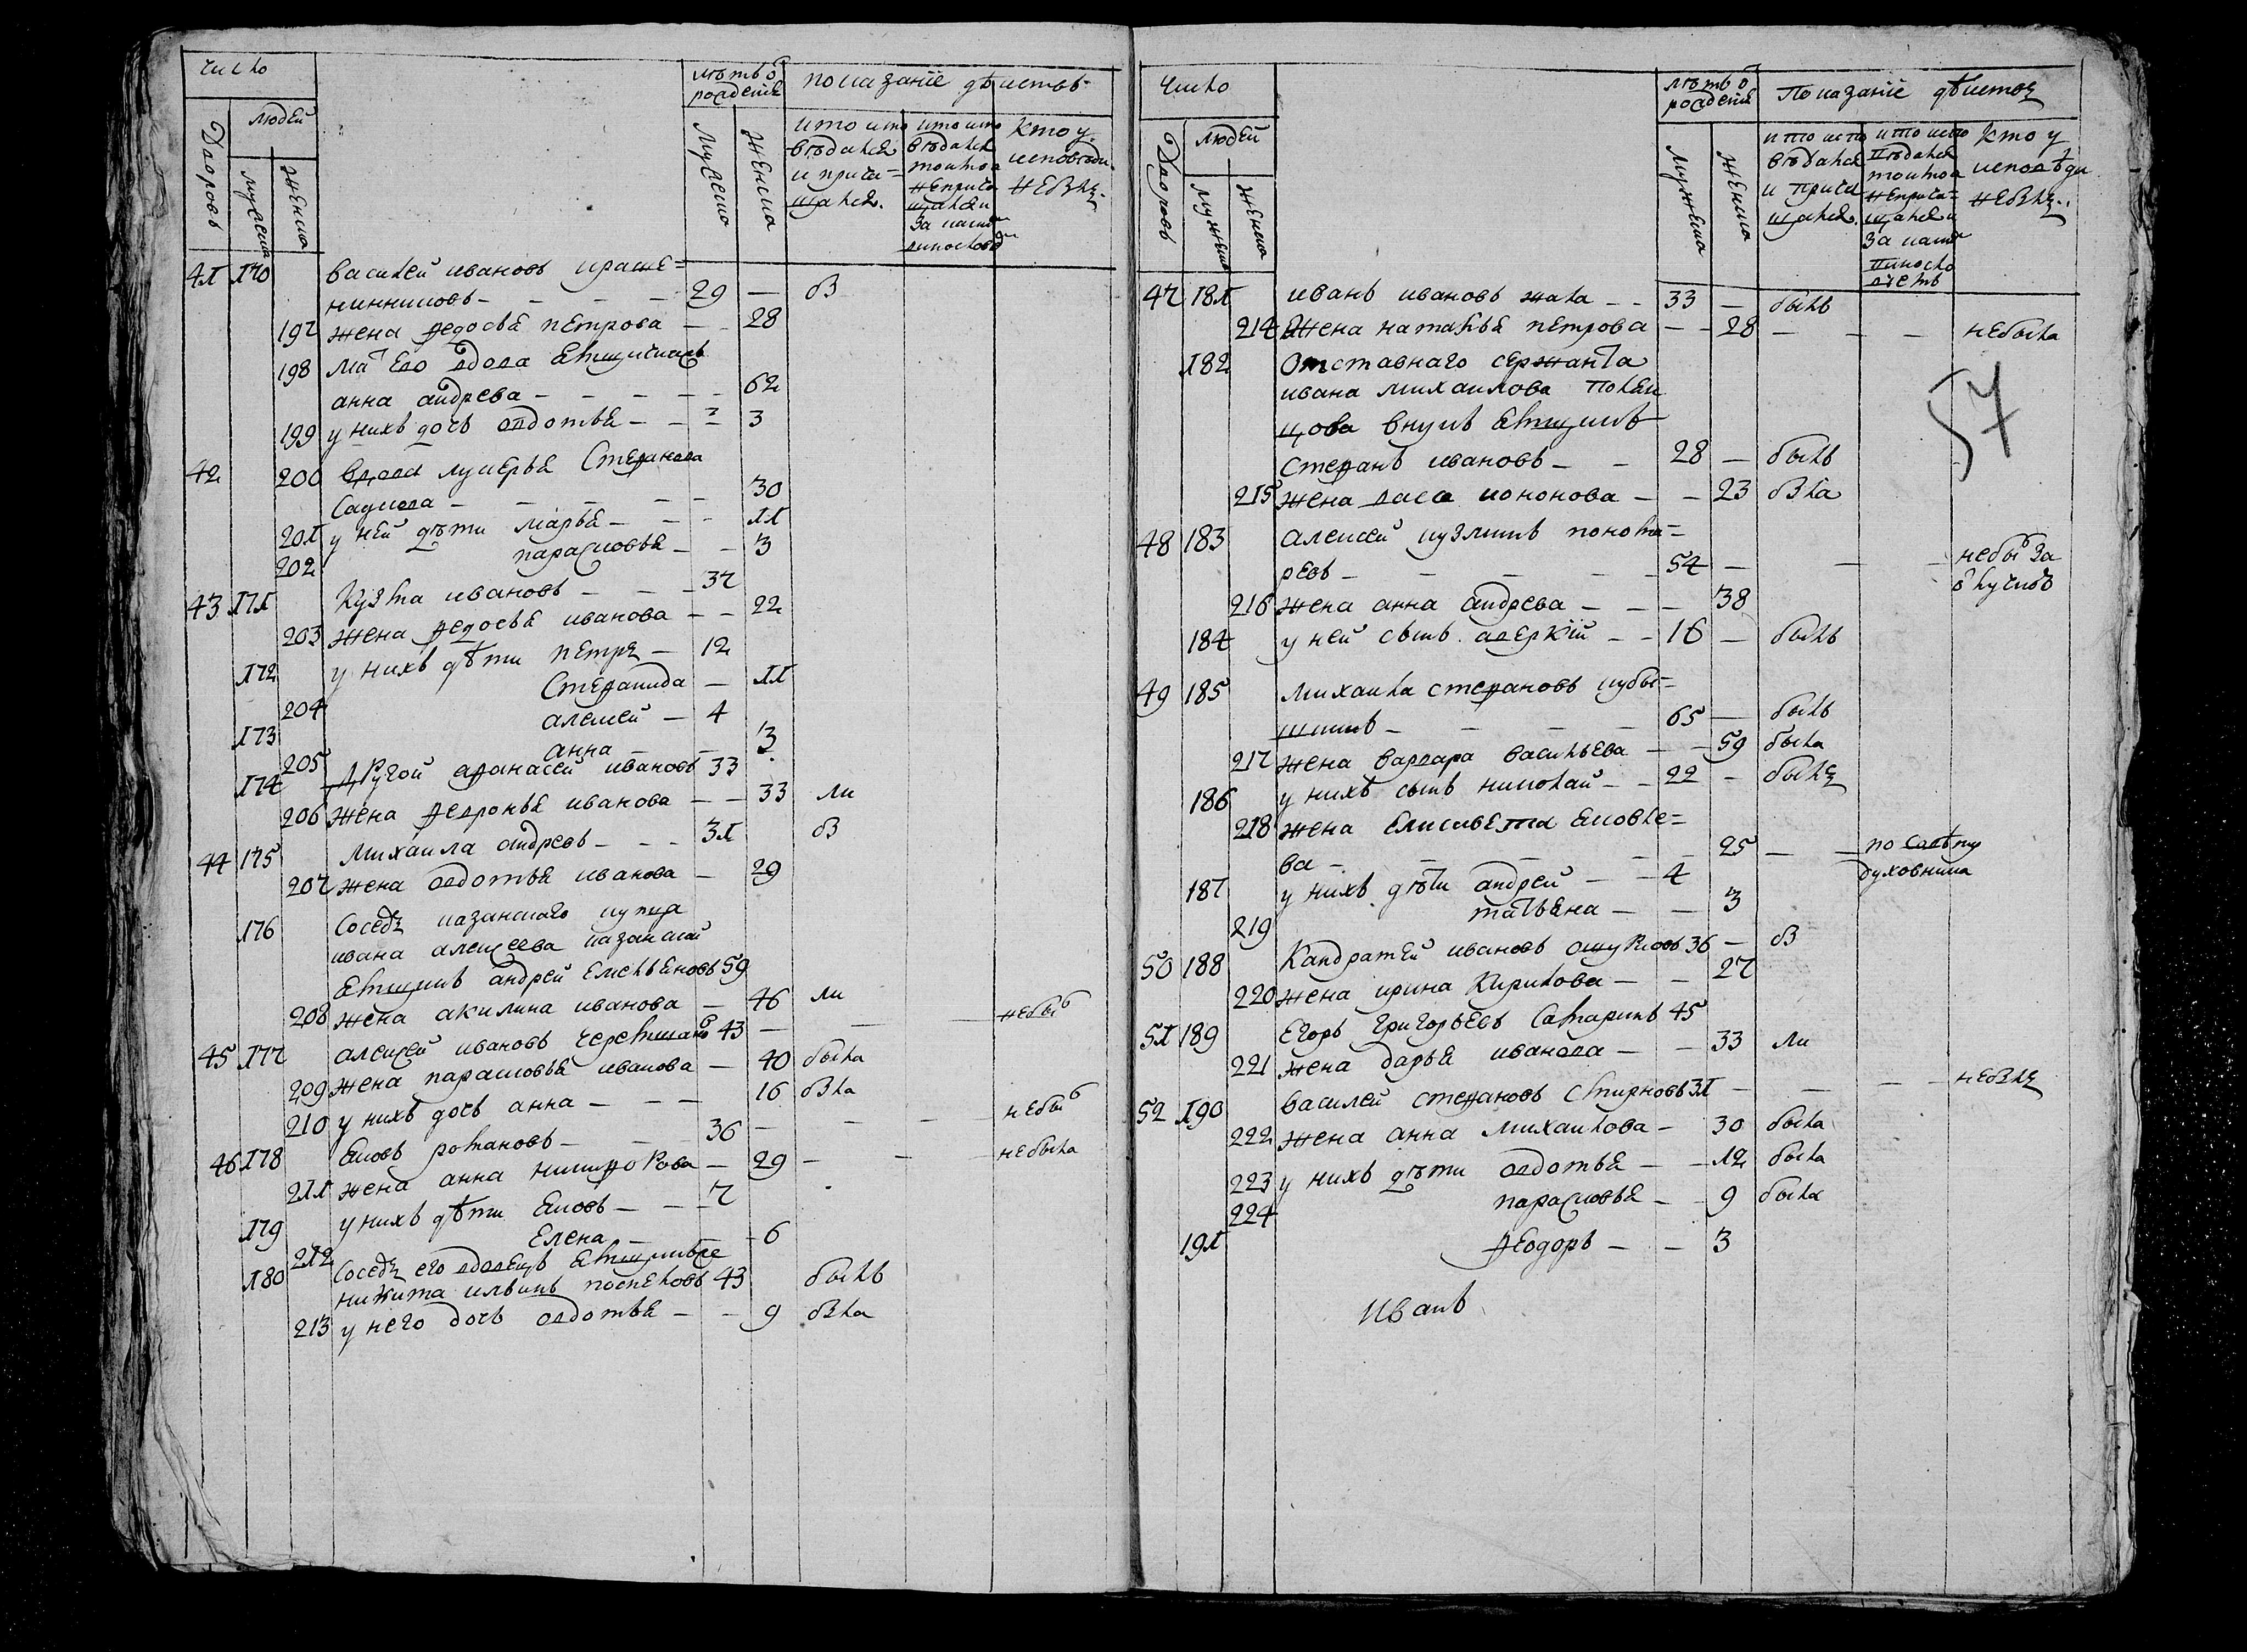 число
людей
Дворовъ
мужеска
женска
лѣтъ ѿ
рожденія
мужеска
женска
показаніе дѣйствъ
кто испо
вѣдался
и прича=
щался.
кто испо
вѣдался
токмо а
неприча
щался и
За каки
виносло
кто у
исповѣди
небылъ
41 170 Василей ивановъ краше=
нинниковъ - - - - 29 — бы
197 жена ѳедосья петрова — - 28
198 ма его вдова
анна андрева - - - - - 62
199 у нихъ дочь авдотья - - - 3
42 200 вдова лукерья Степанова
- - - - - 30
201 у ней дѣти марья - - - 11
202 парасковья - - 3
43 171 Кузма ивановъ - - - 37
203 жена ѳедосья иванова - - 22
172 у нихъ дѣти петръ - 12
204 Степанида - 11
173 алексей - 4
205 анна - - 3
174 другой афанасей ивановъ 33
206 жена ѳевронья иванова - - 33 ли
44 175 Михаила андревъ - - - 31 бы
207 жена авдотья иванова - 29
176 Соседъ казанскаго купца
ивана алексеева казанской
ямщикъ андрей емельяновъ 59
208 жена акилина иванова - 46 ли
45 177 алексей ивановъ 43 — — — небы
209 жена парасковья иванова - 40 была
210 у нихъ дочь анна - - - 16 была
46 178 яковъ романовъ - - - 36 — — — небы
211 жена анна никифорова - 29 — — — небыла
179 у нихъ дѣти яковъ - - - 7
212 Елена - - - 6
180 Соседъ его вдовецъ
никита ильинъ поспеловъ 43 былъ
213 у него дочь авдотья - - 9 была
число
людей
Дворовъ
мужеска
женска
лѣтъ ѿ
рожденія
мужеска
женска
Показаніе дѣйствъ
кто испо
вѣдался
и прича
щался.
кто испо
вѣдался
токмо а
неприча=
щался и
За каки
виносло
кто у
исповѣди
небылъ.
47 181 иванъ ивановъ жала - - 33 — былъ
214 жена наталья петрова - - 28 — — — небыла
57
182 Отставнаго сержанта
ивана михаилова
внукъ ямщикъ
степанъ ивановъ - - 28 — былъ
215 жена - - 23 была
48 183 алексей кузминъ понома=
ревъ - - - - - 54 — — — небы За
216 жена анна андрева - - - 38
184 у ней сынъ аверкій - - 16 — былъ
49 185 михаила степановъ кубы=
шкинъ - - - - 65 — былъ
217 жена варвара васильева - - 59 была
186 у нихъ сынъ николай - - 22 - былъ
218 жена елисавета яковле=
ва - - - - - 25 — — по савѣту
духовника
187 у нихъ дѣти андрей - - 4
219 татьяна - - 3
50 188 Кандратей ивановъ 36 — бы
220 жена ирина Кирилова - - 27
51 189 Егоръ григорьевъ Самаринъ 45
221 жена дарья иванова - - 33 ли
52 190 Василей степановъ Смирновъ 31 — — — небылъ
222 жена анна михаилова - 30 была
223 у нихъ дѣти авдотья - - 12 была
224 парасковья - - 9 была
191 ѳеодоръ - - 3
Иванъ